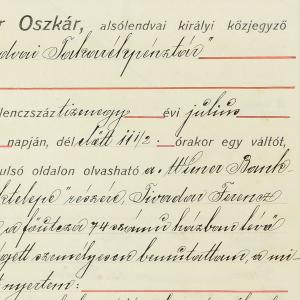 r Oszkár, alsólendvai királyi közjegyző
dvai Takarékpénztár"
lenczszáz tizenegy évi julius
napján, dél előtt 11 1/2 órakor egy váltót,
ulsó oldalon olvasható a Wiener Bank-
ktelepe" részére, Tivadar Ferencz
a főutcza 74 számú házban lévő
személyesen bemutattam, a mi-
nyertem: